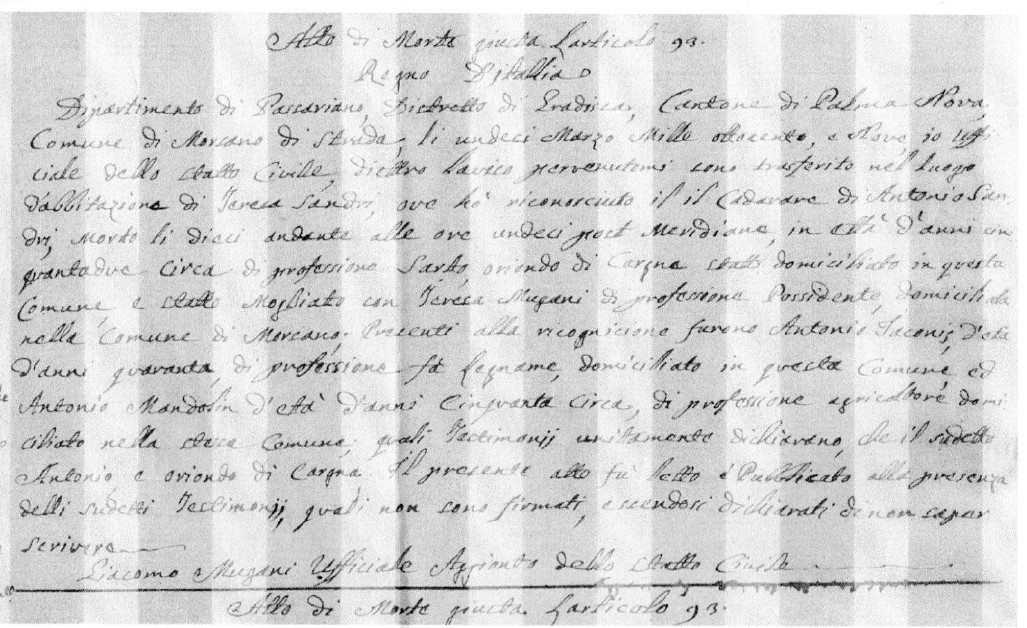 Atto di Morte giusta Larticolo 93.
Regno D'itallia
Dipartimento di Passariano, Distretto di Gradisca, Cantone di Palma Nova,
Comune di Morsano di Strada, li undeci Marzo Mille ottocento, e Nove, io Uffi
ciale dello statto Civille, diettro laviso pervenutomi sono trasferito nel luogo
d'abbitazione di Teresa Sandri, ove hò riconosciuto il il Cadavare di Antonio San
dri, Morto li dieci andante alle ore undeci post Meridiane, in ettà d'anni cin
quantadue circa di professione Sarto, oriondo di Cargna statto domiciliato in questa
Comune, e statto Mogliato con Teresa Mugani di professione Possidente, domiciliata
nella Comune di Morsano. Presenti alla ricognicione furono Antonio Iaconis, d'età
d'anni quaranta, di professione fà Legname, domiciliato in questa Comune ed
Antonio Mandolin d'età d'anni Cinquanta Circa, di professione agricoltore domi
ciliato nella stesa Comune, quali Testimonij unitamente dichiarano, che il sudetto
Antonio e oriondo di Cargna. Il presente atto fù letto e Pubblicato alla presenza
delli sudetti Testimonij, quali non sono firmati, essendosi dichiarati di non saper
scrivere
Giacomo Mugani Ufficiale Aggionto dello statto Civile
Atto di Morte giusta Larticolo 93.